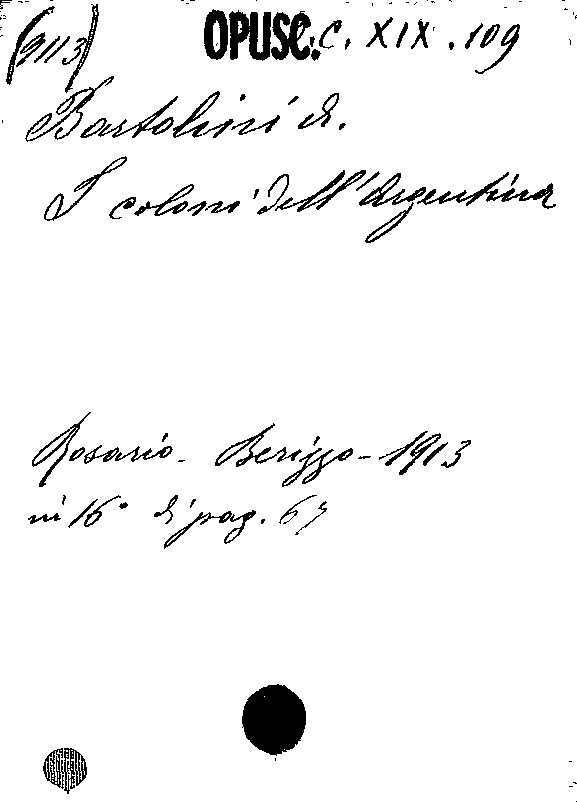 (9113) OPUSC. C. XIX. 109
Bartolini A.
I coloni dell'Argentina
Rosario - Berizzo - 1913
in 16° di pag. 67